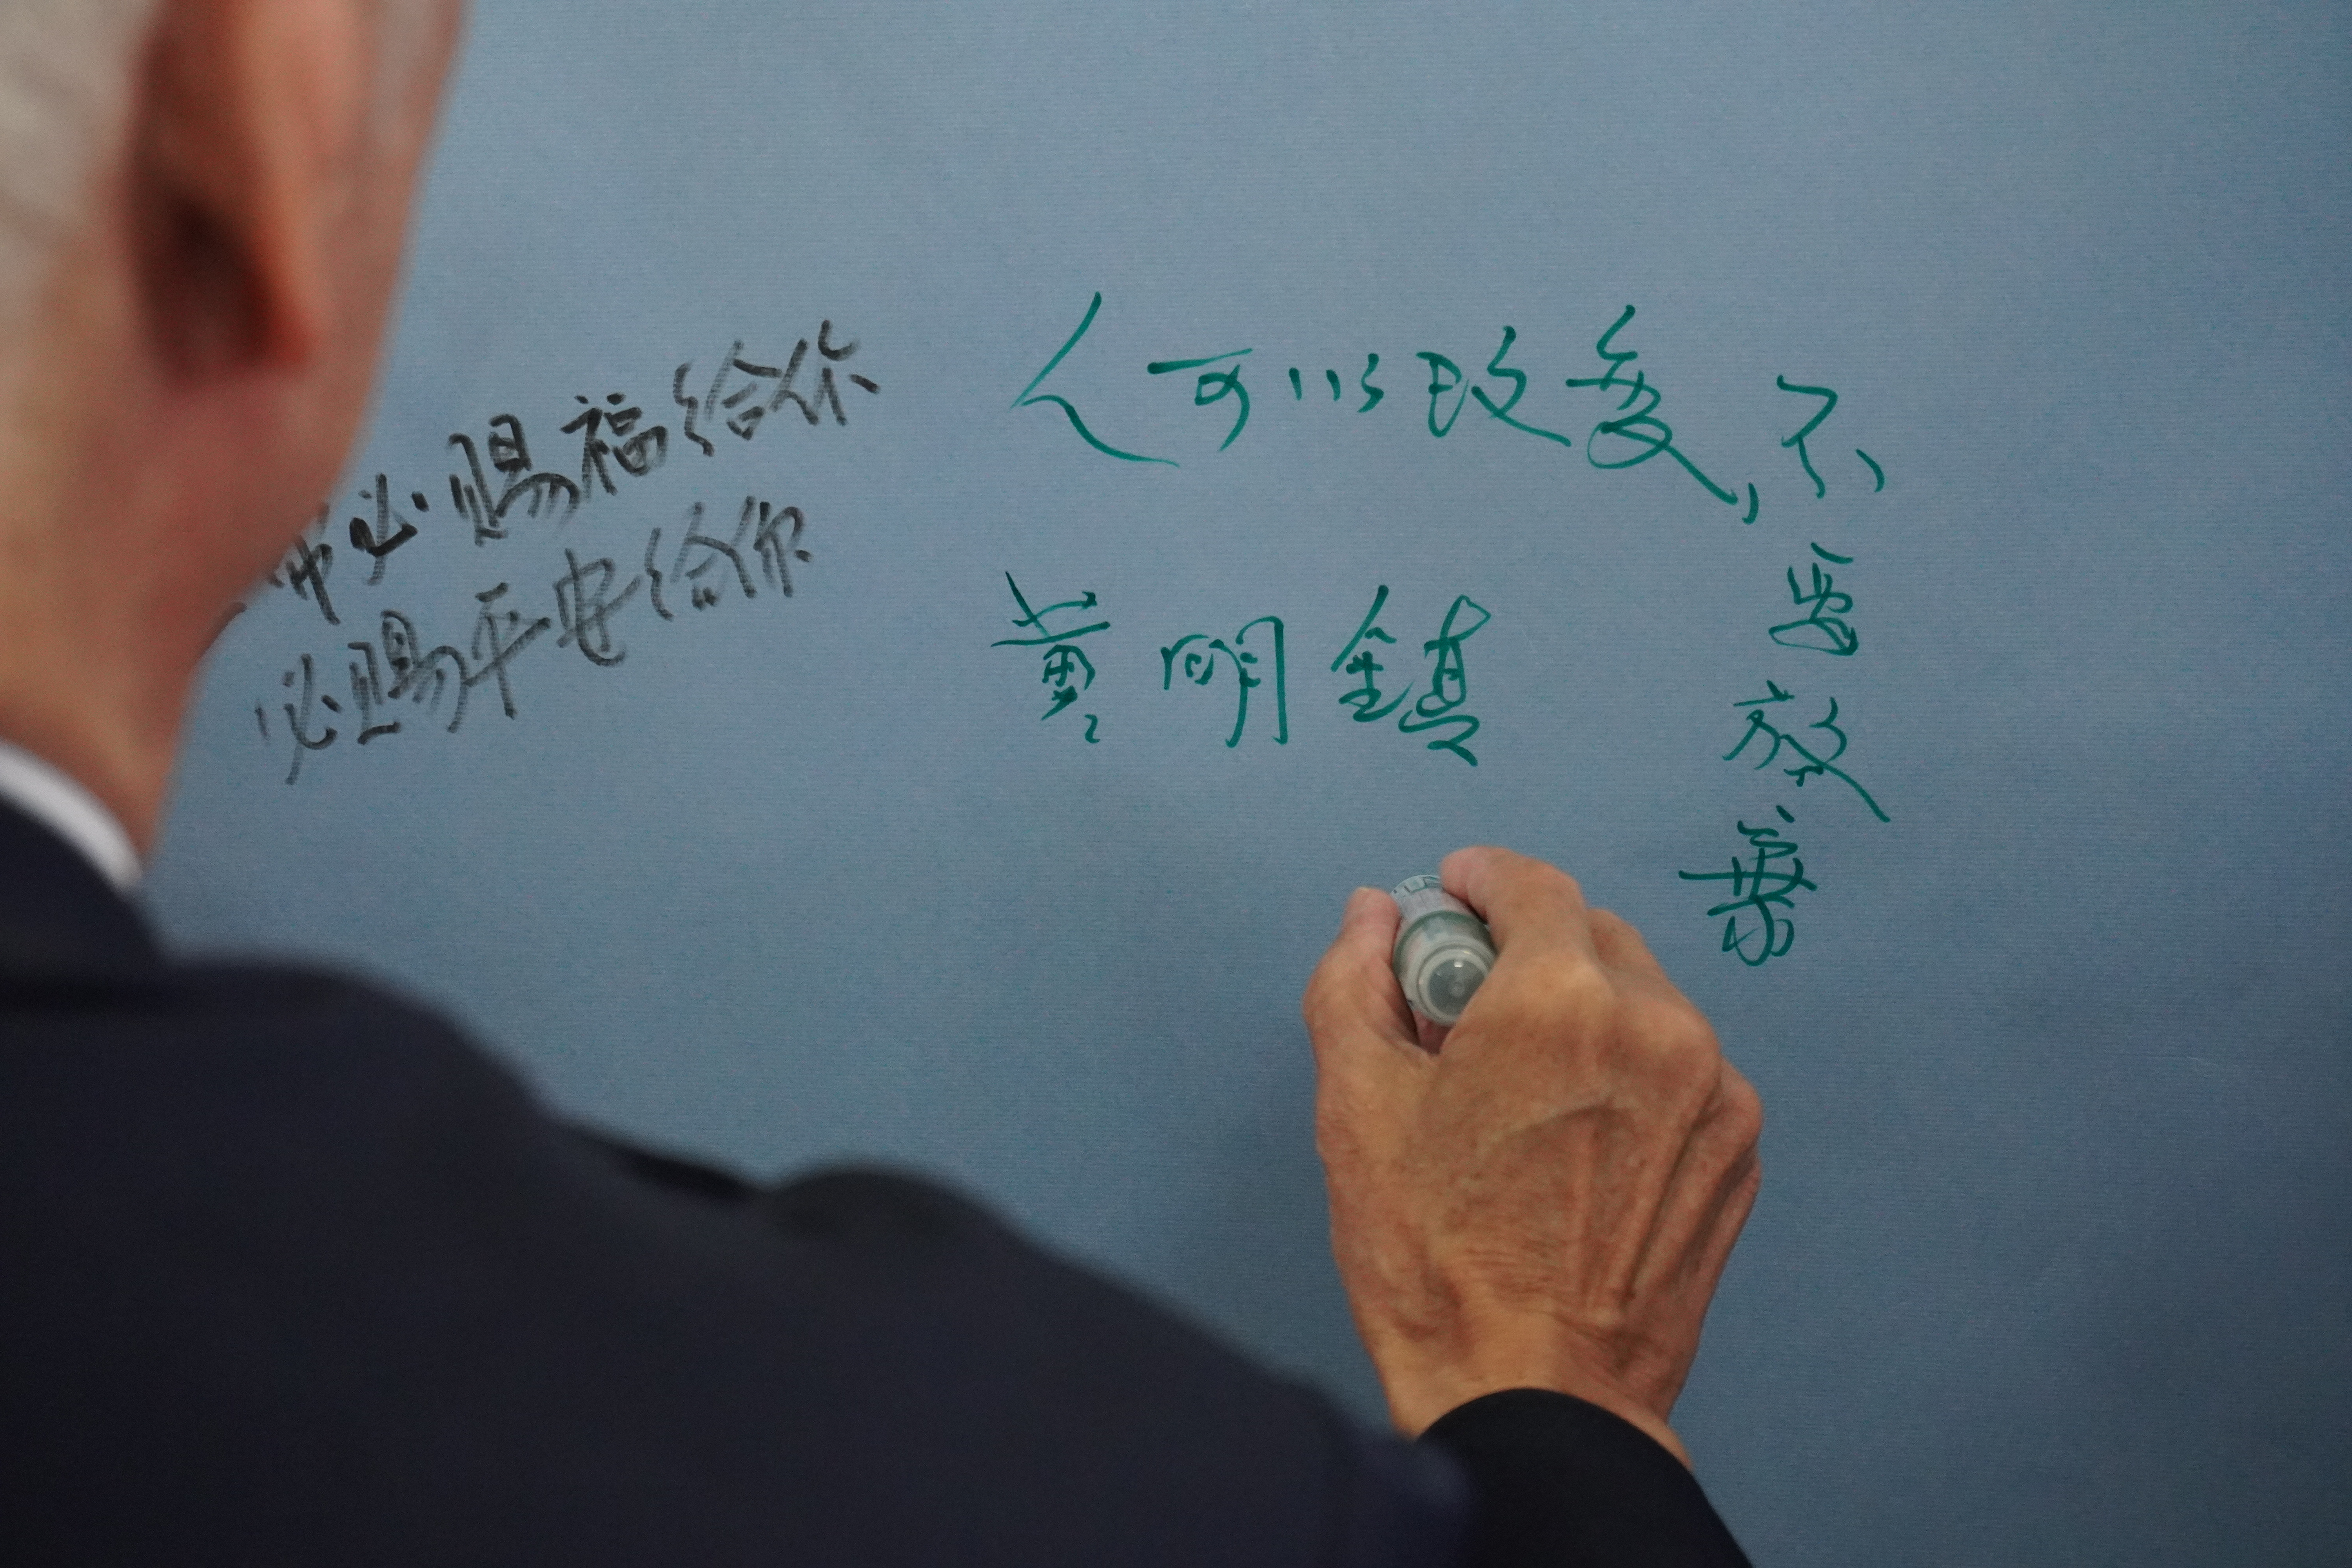 必賜福給你
必賜平安給你
人可以改變,不要放棄
黃明鎮